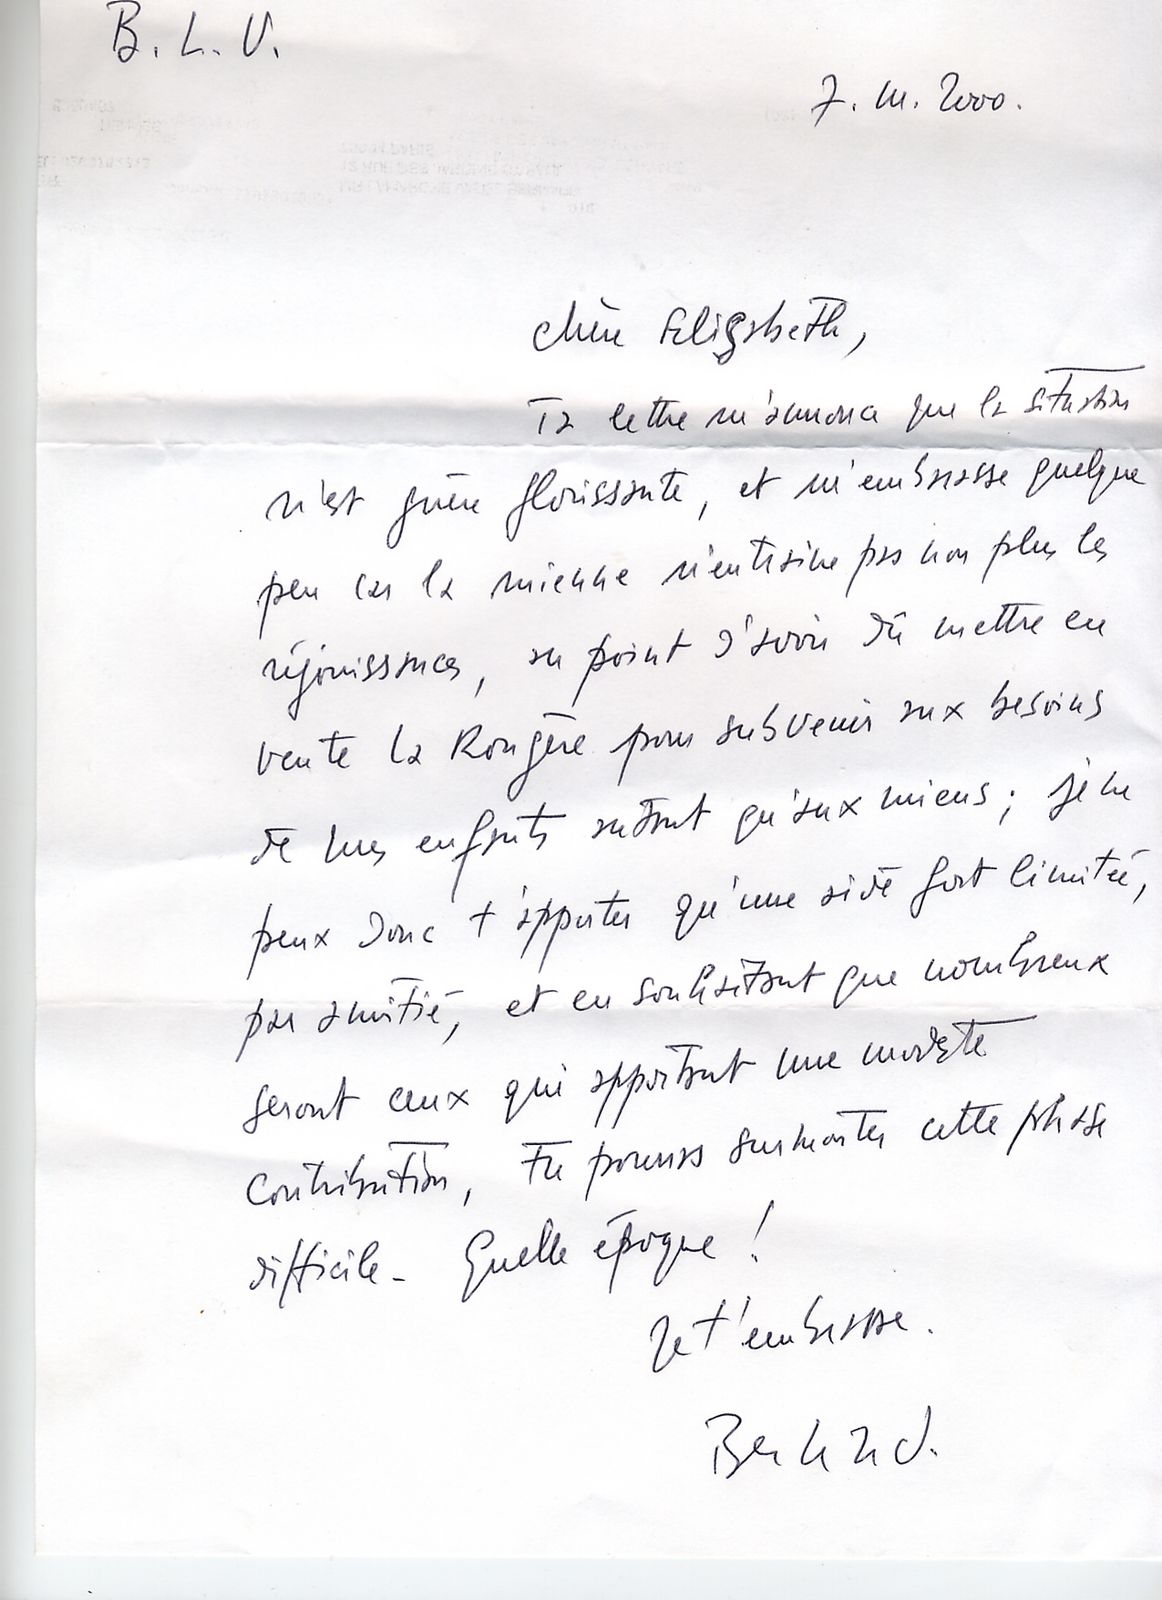 B. L. V.
7. III. 2000.
Chère Elizabeth,
Ta lettre m'annonce que la situation
n'est guère florissante, et m'embarrasse quelque
peu car la mienne n'entraine pas non plus les
réjouissances, au point d'avoir dû mettre en
vente la Rongère pour subvenir aux besoins
de mes enfants autant qu'aux miens ; je ne
peux donc t'apporter qu'une aide fort limitée,
par amitié, et en souhaitant que nombreux
seront ceux qui apportant une modeste
contribution, tu pourras surmonter cette phase
difficile - Quelle époque !
Je t'embrasse.
Bernard.